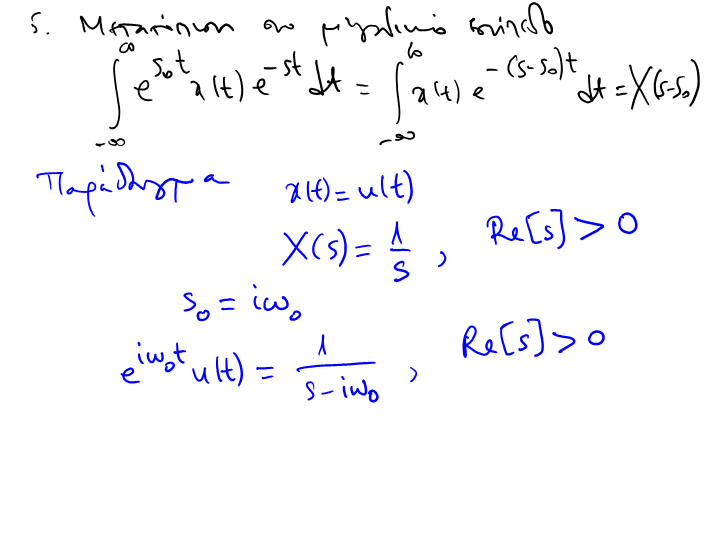 5. Μετατόπιση στο μιγαδικό επίπεδο
∫_{-∞}^{∞} e^{s₀t} x(t) e^{-st} dt = ∫_{-∞}^{∞} x(t) e^{-(s-s₀)t} dt = X(s-s₀)
Παράδειγμα x(t) = u(t)
X(s) = 1/s , Re[s] > 0
s₀ = iω₀
e^{iω₀t} u(t) = 1/(s-iω₀) , Re[s] > 0